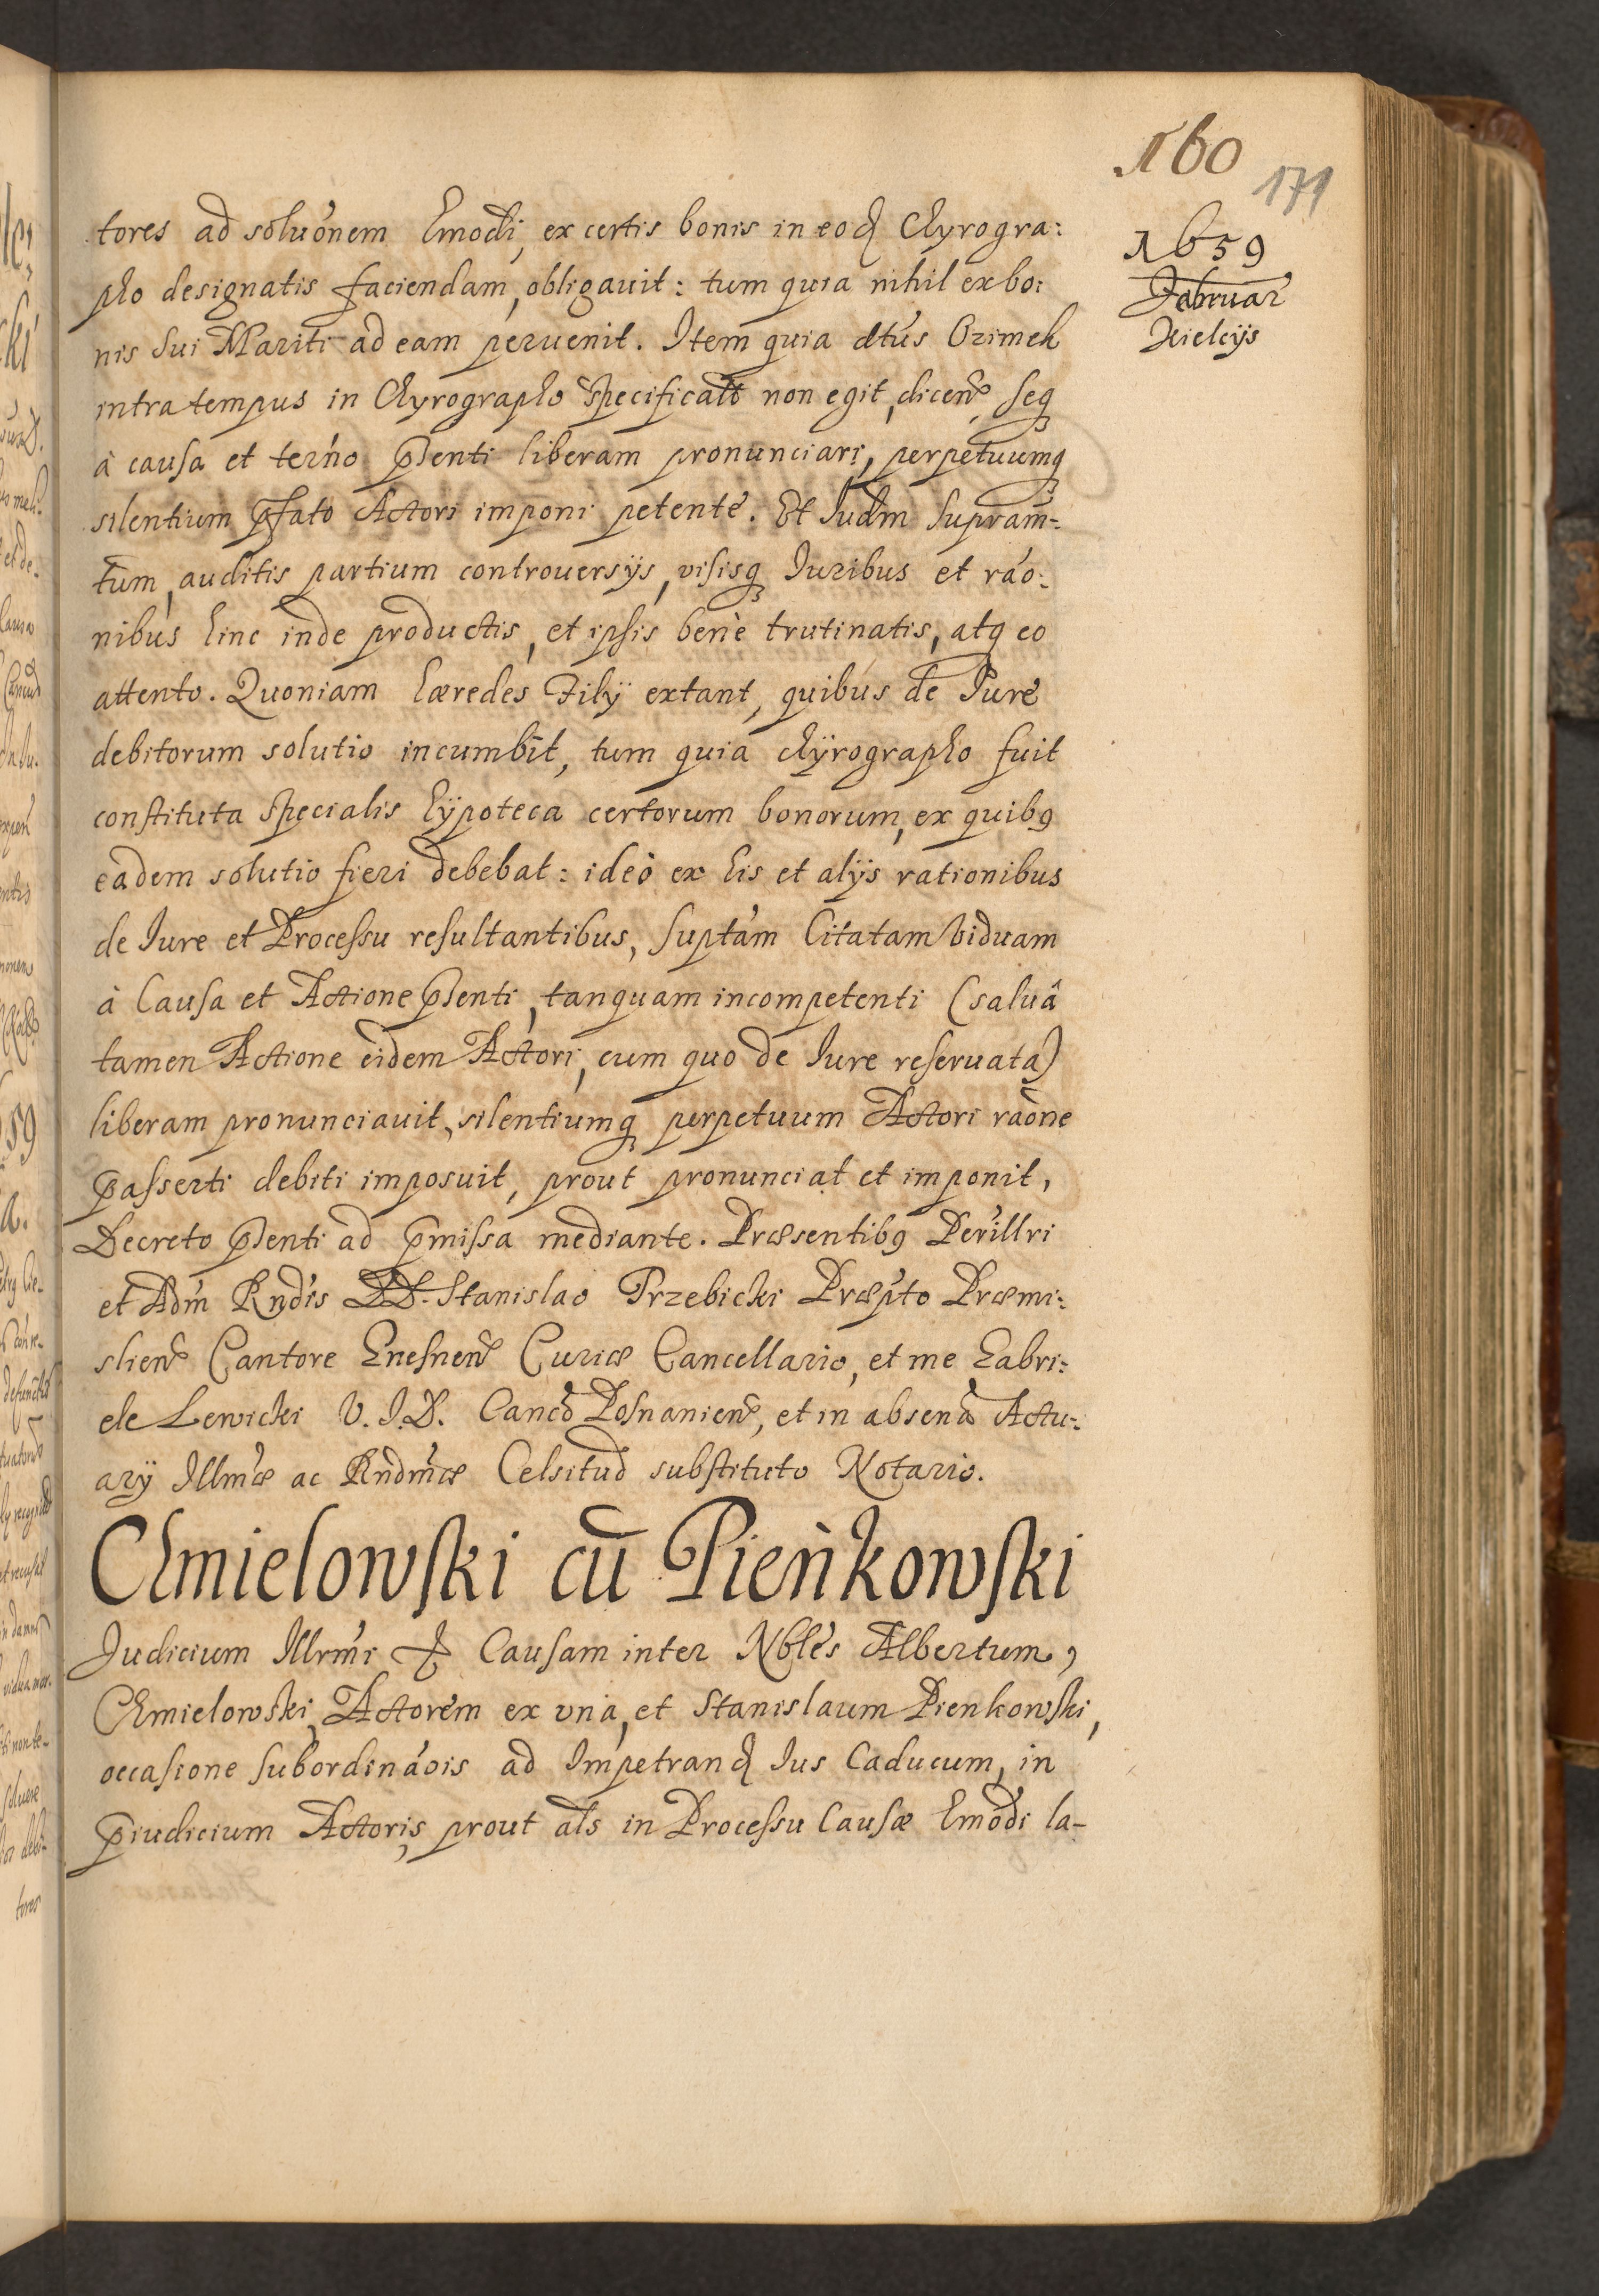 160
171
1659
Februar
Kielcijs
tores ad soluónem hmodi, ex certis bonis in eod Chyrogra:
pho designatis faciendam, obligauit: tum quia nihil ex bo:
nis sui Mariti ad eam peruenit. Item quia dtus Ozimek
intra tempus in Chyrographo specificato non egit, dicen, seq
à causa et terno pnti liberam pronunciari, perpetuumq
silentium pfato Actori imponi petente. Et Iudm supram=
tum, auditis partium controuersijs, visisq Iuribus et rao:
nibus hinc inde productis, et ipsis bene trutinatis, atq eo
attento. Quoniam hæredes Filij extant, quibus de Iure
debitorum solutio incumbit, tum quia chÿrographo fuit
constituta specialis hÿpoteca certorum bonorum, ex quibq
eadem solutio fieri debebat: ideò ex his et alijs rationibus
de Iure et Processu resultantibus, suptam Citatam viduam
à Causa et Actione pnti, tanquam incompetenti (saluâ
tamen Actione eidem Actori, cum quo de Iure reseruata)
liberam pronunciauit, silentiumq perpetuum Actori raone
passerti debiti imposuit, prout pronunciat et imponit,
Decreto pnti ad pmissa mediante. Præsentibq Perillri
et Adm Rndis DD. Stanislao Przebicki Præpto Præmi:
slien Cantore Gnesnen Curiæ Cancellario, et me Gabri:
ele Lewicki V.I.D. Canco Posnanien, et in absena Actu:
arÿ Illmæ ac Rndmæ Celsitud substituto Notario.
Chmielowski cū Pieńkowski
Judicium Illrmi & Causam inter Nbles Albertum,
Chmielowski, Actorem ex vna, et Stanislaum Pienkowski,
occasione subordináois ad Impetrand Ius Caducum, in
piudicium Actoris, prout als in Processu Causæ hmodi la-